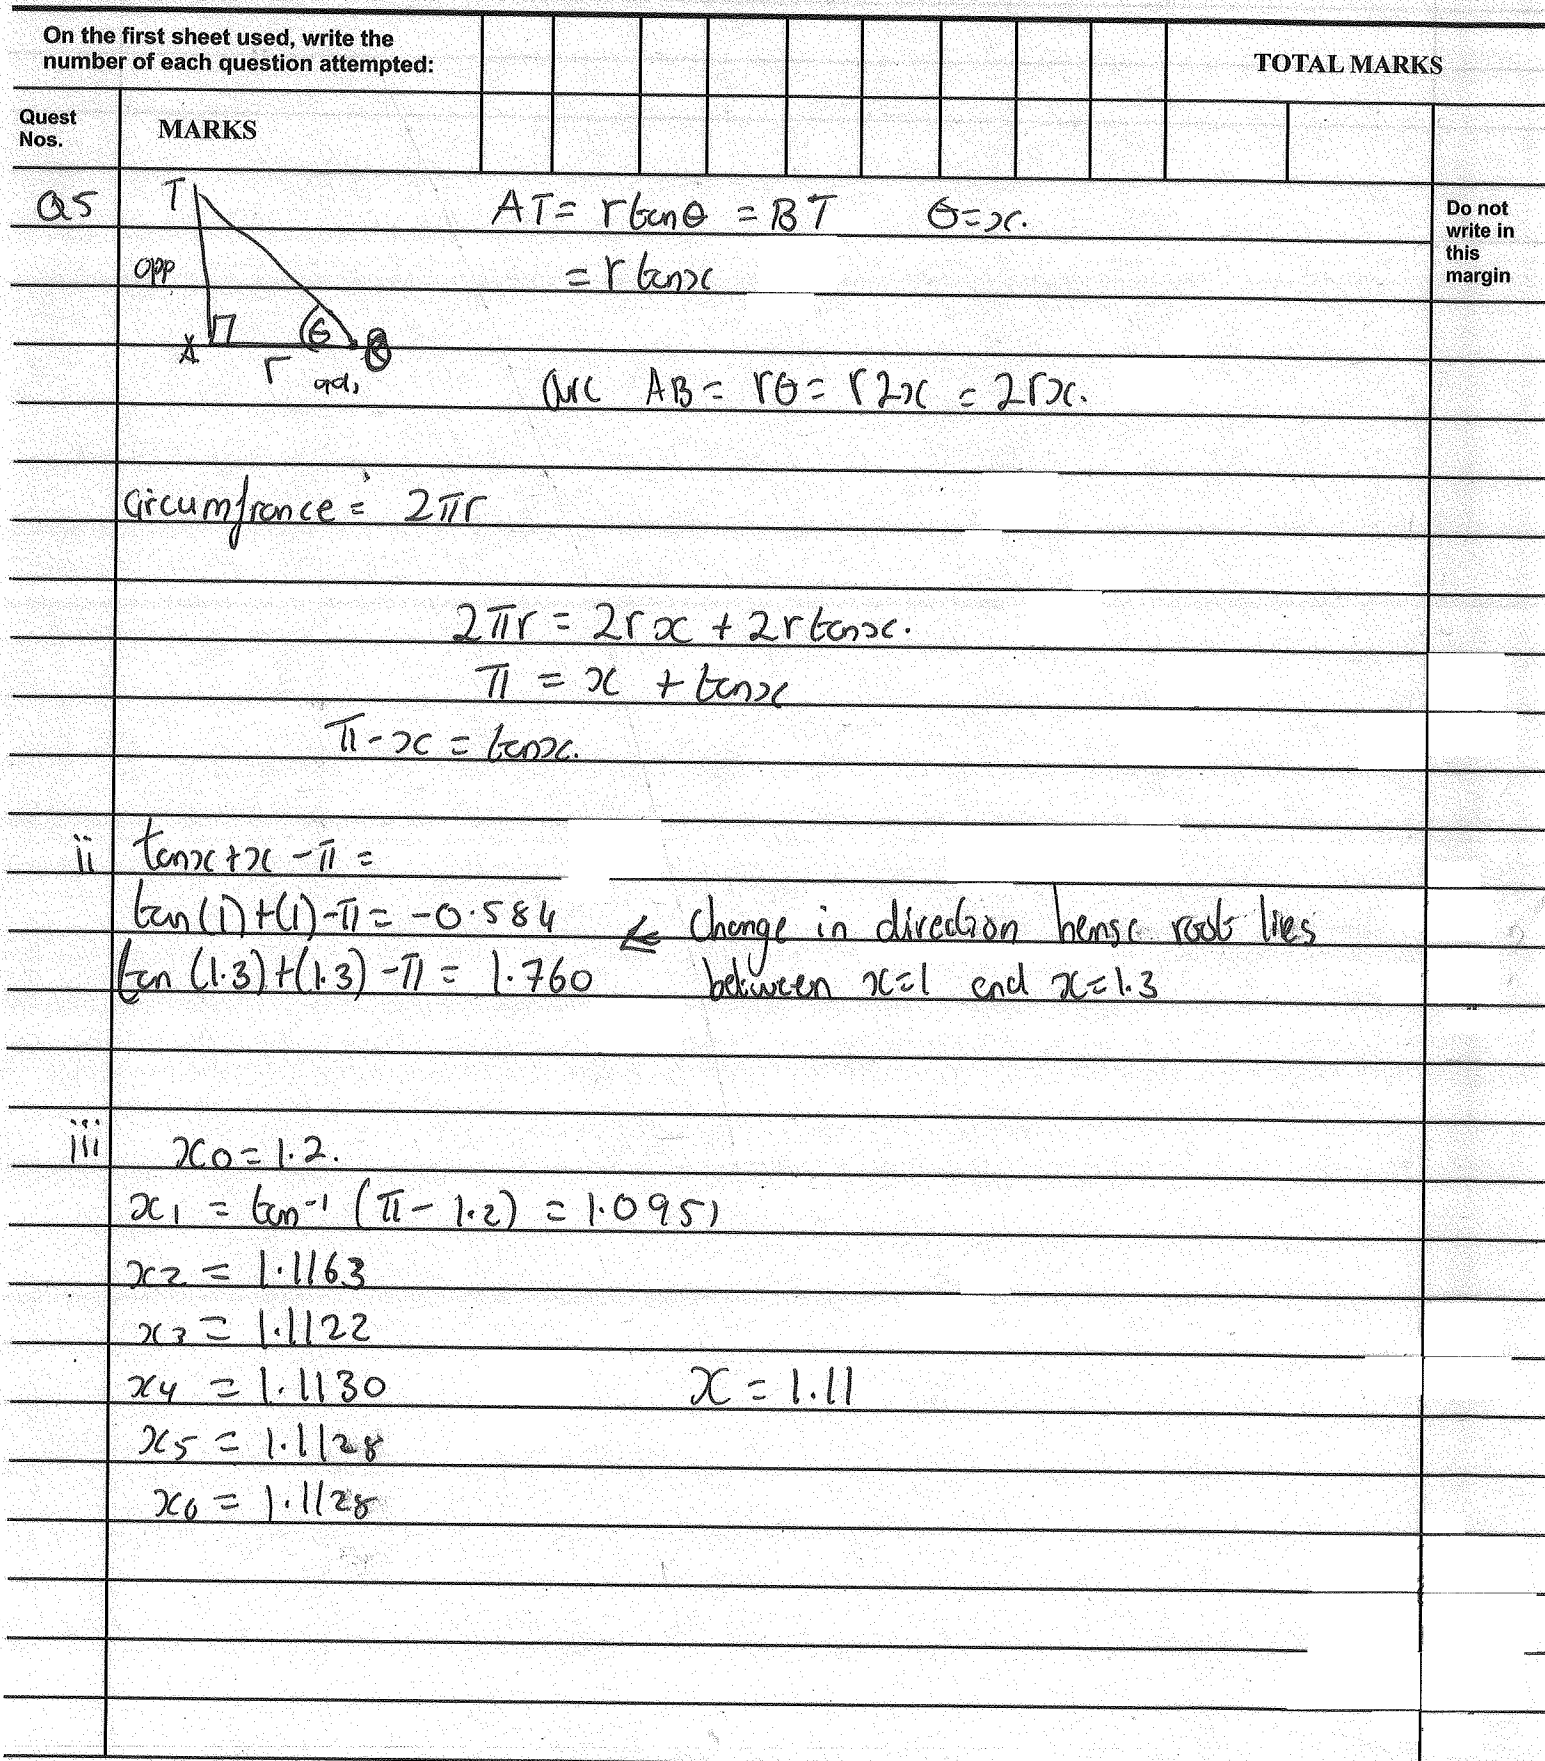 On the first sheet used, write the
number of each question attempted:
TOTAL MARKS
Quest
Nos.
MARKS
Do not
write in
this
margin
Q5
T
opp
A
θ
r
adj
AT = r tan θ = BT θ = x.
= r tan x
arc AB = rθ = r2x = 2rx.
circumfrance = 2πr
2πr = 2rx + 2r tan x.
π = x + tan x
π - x = tan x.
ii tan x + x - π =
tan(1)+(1)-π = -0.584 ⇐ change in direction hense root lies
tan (1.3)+(1.3) - π = 1.760 between x=1 and x=1.3
iii x0 = 1.2.
x1 = tan⁻¹ (π - 1.2) = 1.0951
x2 = 1.1163
x3 = 1.1122
x4 = 1.1130 x = 1.11
x5 = 1.1128
x6 = 1.1128